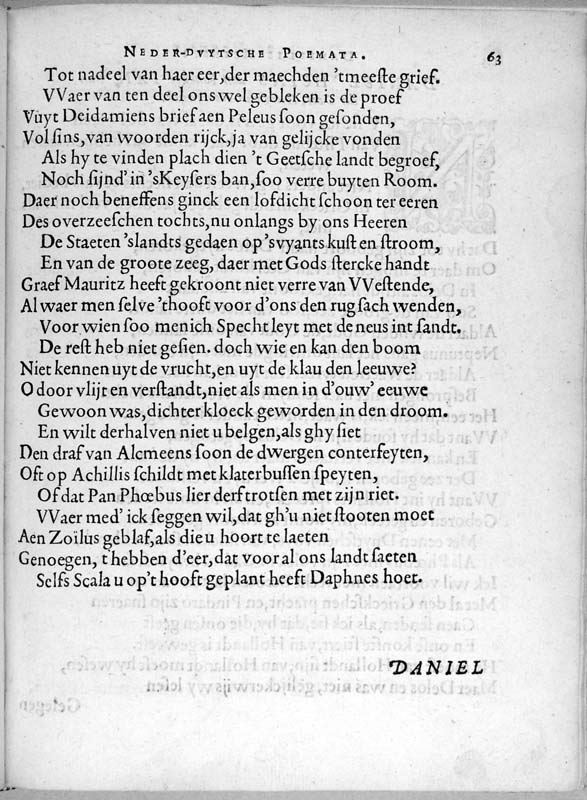 NEDER-DVYTSCHE POEMATA. 63
Tot nadeel van haer eer, der maechden 'tmeeste grief.
VVaer van ten deel ons wel gebleken is de proef
Vuyt Deidamiens brief aen Peleus soon gesonden,
Vol sins, van woorden rijck, ja van gelijcke vonden
Als hy te vinden plach dien 't Geetsche landt begroef,
Noch sijnd' in 'sKeysers ban, soo verre buyten Room.
Daer noch beneffens ginck een lofdicht schoon ter eeren
Des overzeeschen tochts, nu onlangs by ons Heeren
De Staeten 'slandts gedaen op 'svyants kust en stroom,
En van de groote zeeg, daer met Gods stercke handt
Graef Mauritz heeft gekroont niet verre van VVestende,
Al waer men selve 'thooft voor d'ons den rug sach wenden,
Voor wien soo menich Specht leyt met de neus int sandt.
De rest heb niet gesien. doch wie en kan den boom
Niet kennen uyt de vrucht, en uyt de klau den leeuwe?
O door vlijt en verstandt, niet als men in d'ouw' eeuwe
Gewoon was, dichter kloeck geworden in den droom.
En wilt derhalven niet u belgen, als ghy siet
Den draf van Alcmeens soon de dwergen conterfeyten,
Oft op Achillis schildt met klaterbussen speyten,
Of dat Pan Phœbus lier derf trotsen met zijn riet.
VVaer med' ick seggen wil, dat gh'u niet stooten moet
Aen Zoilus geblaf, als die u hoort te laeten
Genoegen, t'hebben d'eer, dat voor al ons landt saeten
Selfs Scala u op't hooft geplant heeft Daphnes hoet.
DANIEL